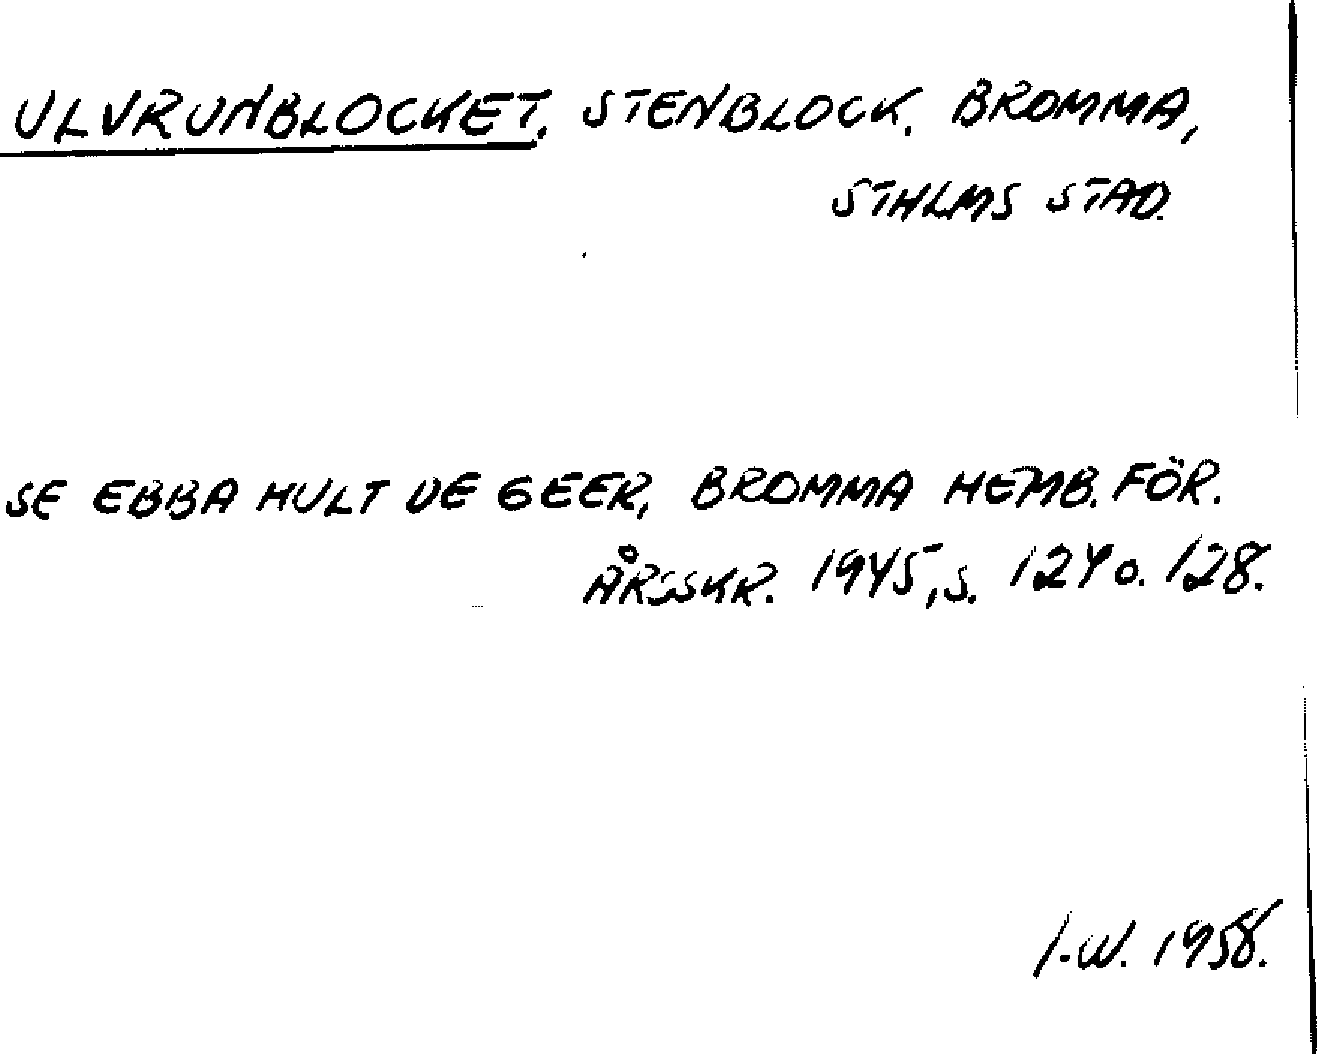 ULVRUNBLOCKET, STENBLOCK, BROMMA,
STHLMS STAD.
SE EBBA HULT DE GEER, BROMMA HEMB. FÖR.
ÅRSSKR. 1945, s. 124 o. 128.
I-W. 1958.